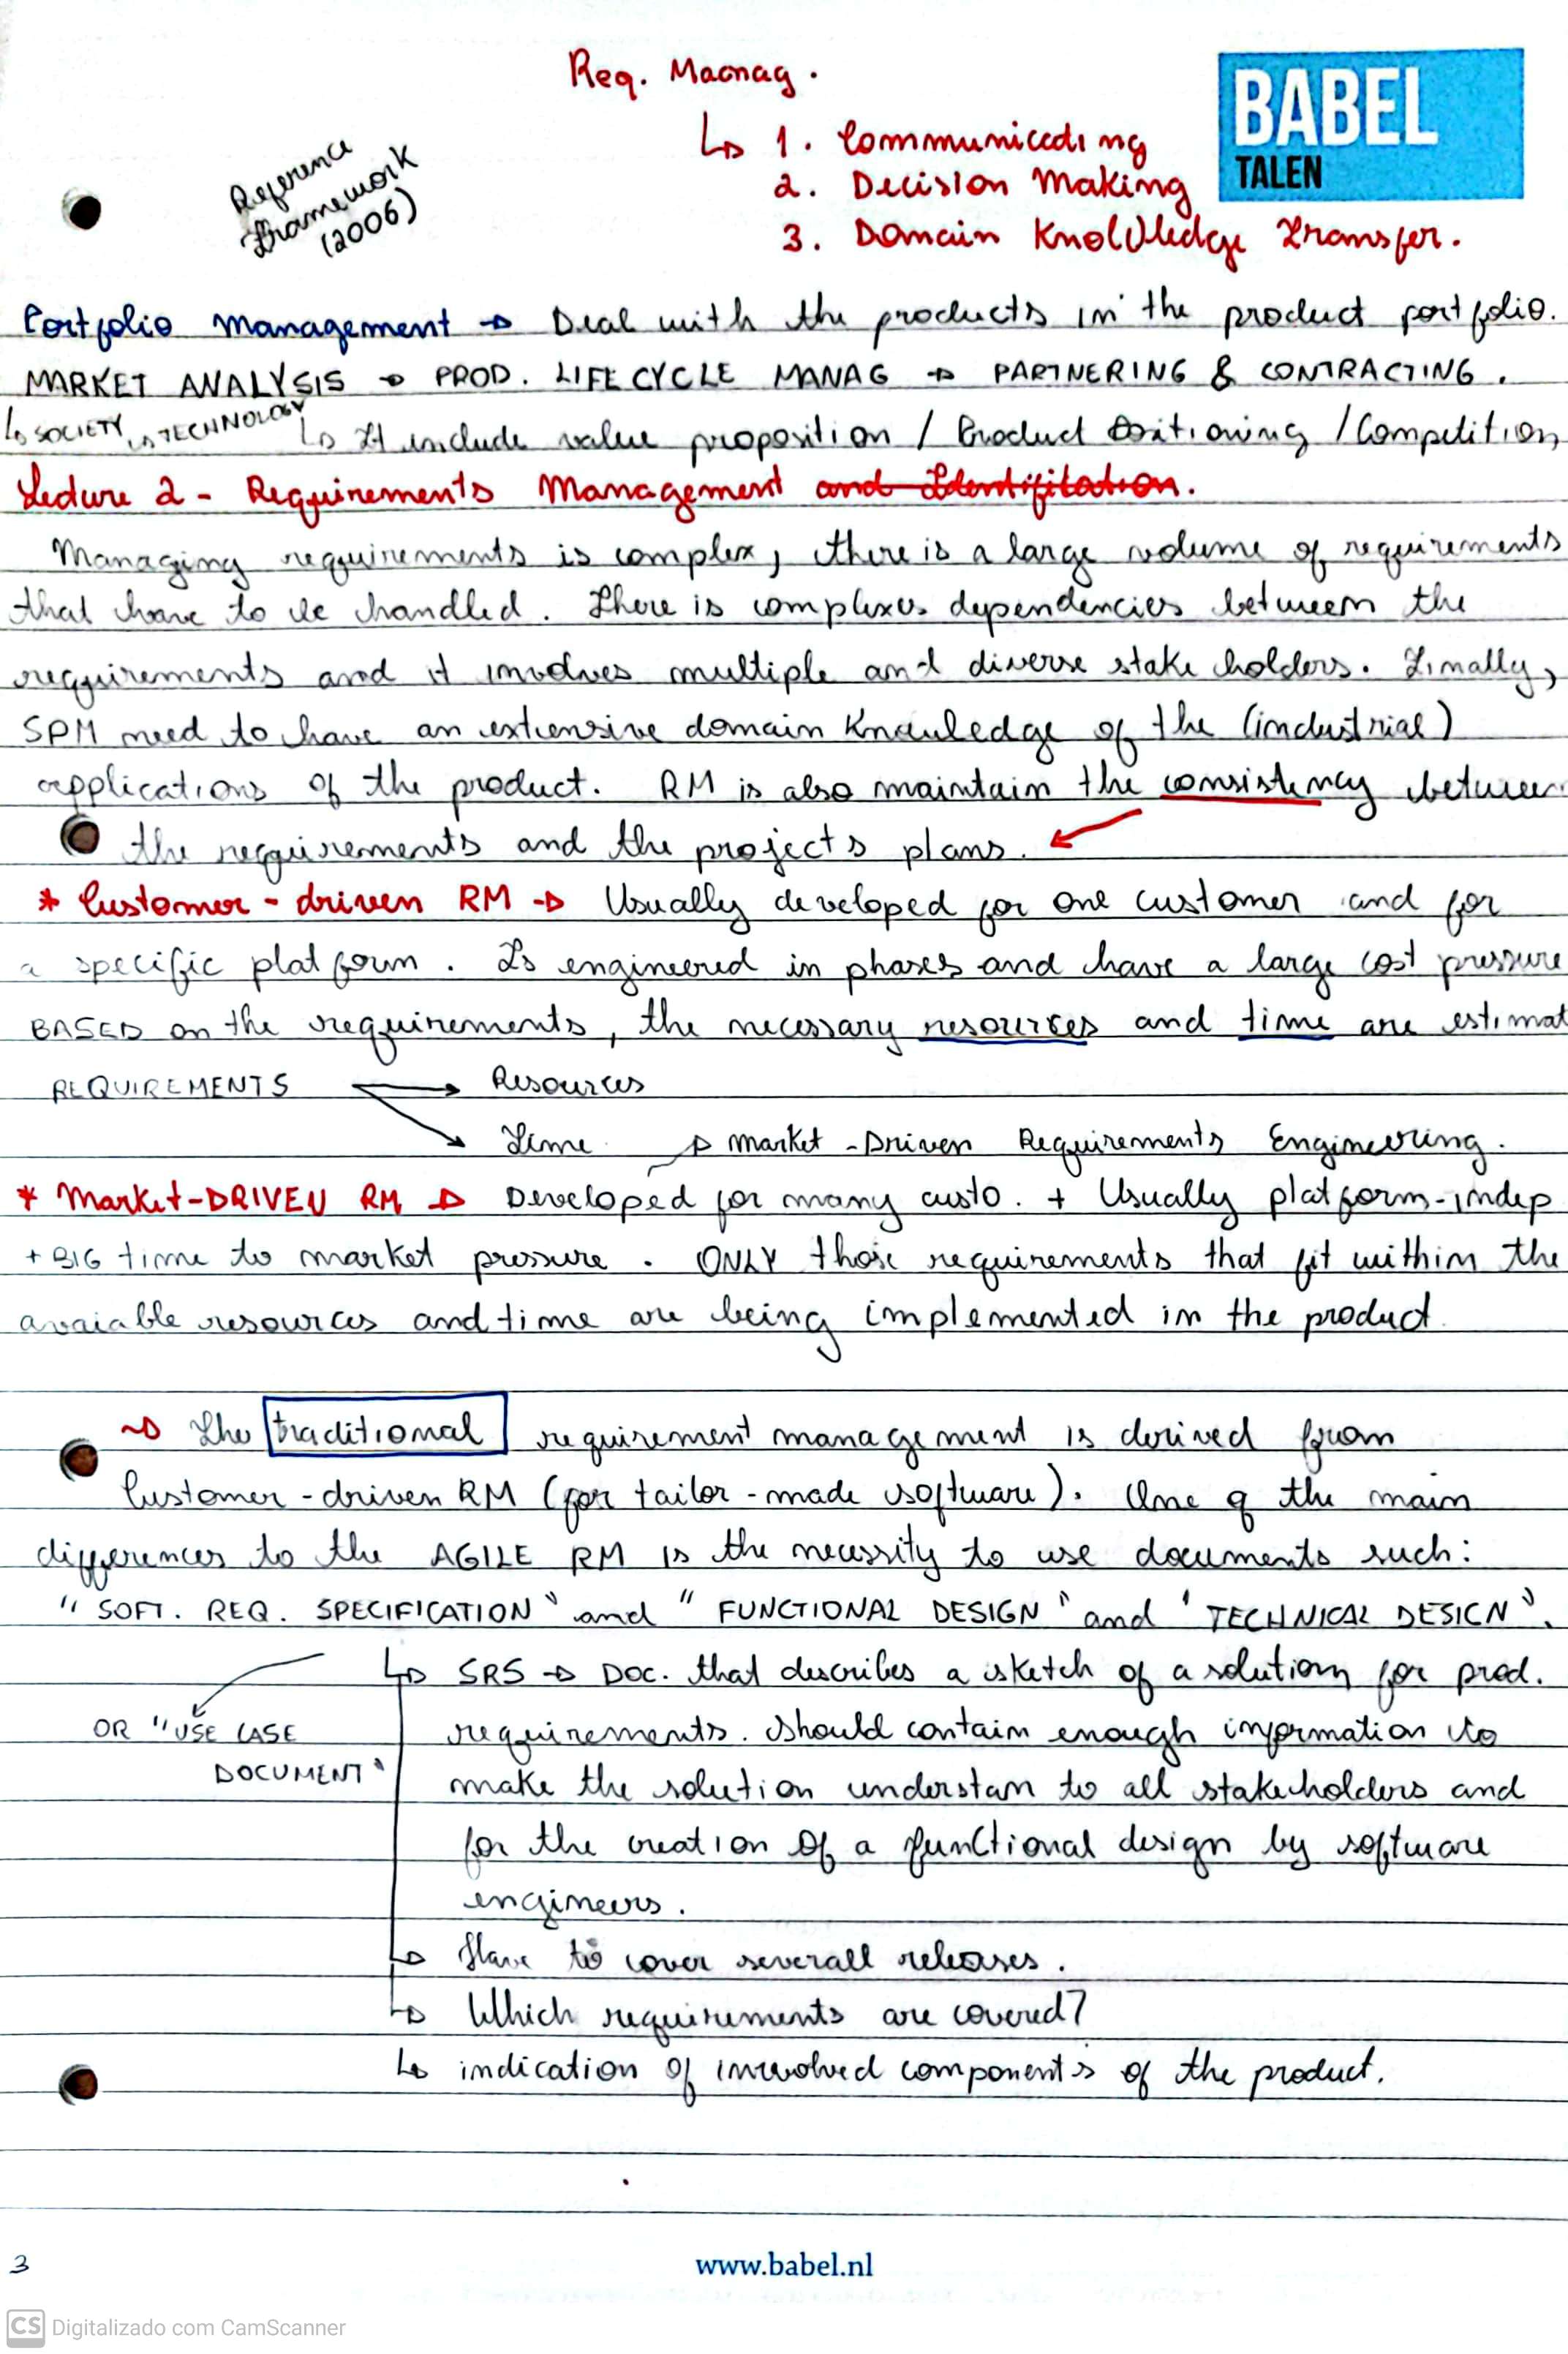 Req. Macnag.
↳ 1. Communicating
2. Decision Making
3. Domain KnolWledge Transfer.
BABEL
TALEN
Reference
Framework
(2006)
Portfolio Management → Deal with the products in the product portfolio.
MARKET ANALYSIS → PROD. LIFECYCLE MANAG → PARTNERING & CONTRACTING.
↳ SOCIETY ↳ TECHNOLOGY ↳ It include value proposition / Product Positioning / Competition,
Lecture 2 - Requirements Management and Identification.
Managing requirements is complex, there is a large volume of requirements
that have to be handled. There is complexes dependencies between the
requirements and it involves multiple and diverse stake holders. Finally,
SPM need to have an extensive domain Knowledge of the (industrial)
applications of the product. RM is also maintain the consistency between
the requirements and the projects plans.
* Customer-driven RM → Usually developed for one customer and for
a specific platform. Is engineered in phases and have a large cost pressure
BASED on the requirements, the necessary resources and time are estimat
REQUIREMENTS → Resources
→ Time
→ Market-Driven Requirements Engineering.
* Market-DRIVEN RM → Developed for many custo. + Usually platform-indep
+ BIG time to market pressure. ONLY those requirements that fit within the
avaiable resources and time are being implemented in the product
→ The traditional requirement management is derived from
Customer-driven RM (for tailor-made software). One of the main
differences to the AGILE RM is the necessity to use documents such:
"SOFT. REQ. SPECIFICATION" and "FUNCTIONAL DESIGN" and "TECHNICAL DESIGN".
↳ SRS → DOC. that describes a sketch of a solution for prod.
OR "USE CASE
DOCUMENT"
requirements. Should contain enough information to
make the solution understan to all stakeholders and
for the creation of a functional design by software
engineers.
↳ Have to cover severall releases.
↳ Which requirements are covered?
↳ indication of involved components of the product.
3
www.babel.nl
CS Digitalizado com CamScanner